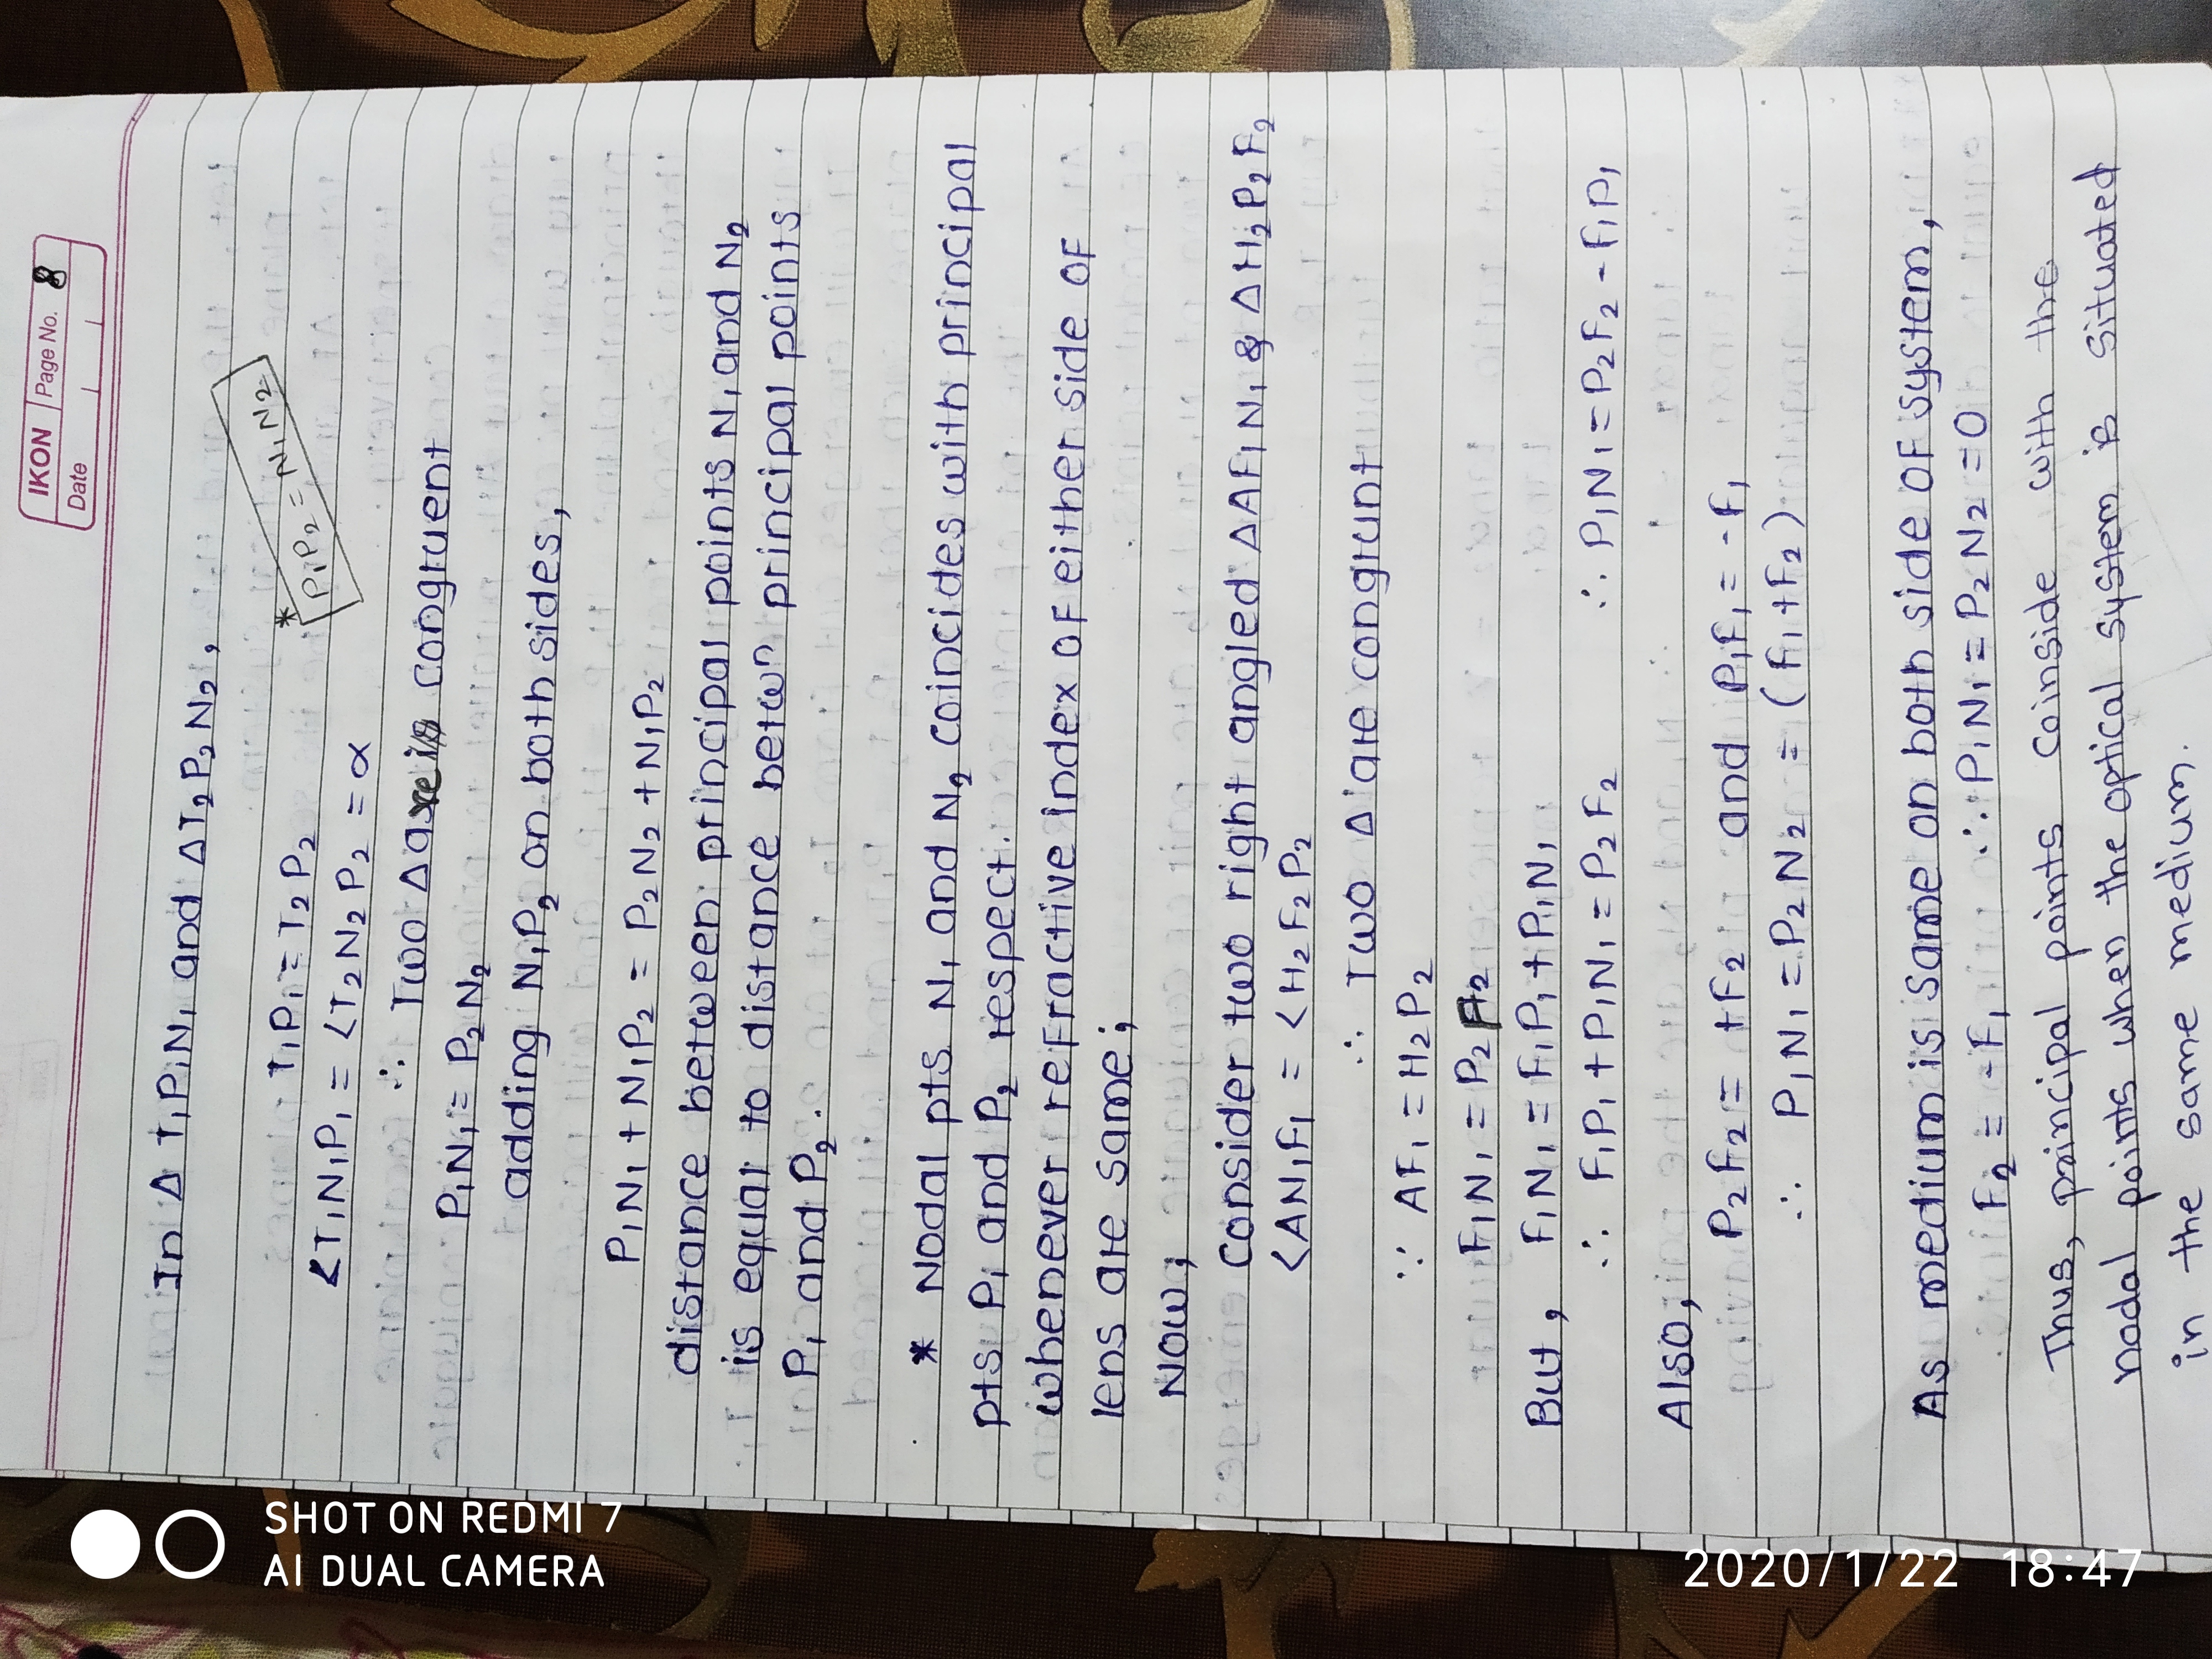 IKON Page No. 8
Date
In Δ T₁P₁N₁ and ΔT₂P₂N₂,
* P₁P₂ = N₁N₂
T₁P₁ = T₂P₂
<T₁N₁P₁ = <T₂N₂P₂ = α
∴ Two Δ are congruent
P₁N₁ = P₂N₂
adding N₁P₂ on both sides,
P₁N₁ + N₁P₂ = P₂N₂ + N₁P₂
distance between principal points N₁ and N₂
is equal to distance betwⁿ principal points
P₁ and P₂.
* Nodal pts. N₁ and N₂ coincides with principal
pts. P₁ and P₂ respect.
whenever refractive index of either side of
lens are same;
Now,
consider two right angled ΔAF₁N₁ & ΔH₂P₂F₂
<AN₁F₁ = <H₂F₂P₂
∴ Two Δ are congrunt
∵ AF₁ = H₂P₂
F₁N₁ = P₂F₂
But, F₁N₁ = F₁P₁ + P₁N₁
∴ F₁P₁ + P₁N₁ = P₂F₂ ∴ P₁N₁ = P₂F₂ - F₁P₁
Also,
P₂F₂ = +F₂ and P₁F₁ = -f₁
∴ P₁N₁ = P₂N₂ = (f₁+f₂)
As medium is same on both side of system,
F₂ = -F₁ ∴ P₁N₁ = P₂N₂ = 0
Thus, principal points coinside with the
nodal points when the optical system is situated
in the same medium.
SHOT ON REDMI 7
AI DUAL CAMERA
2020/1/22 18:47